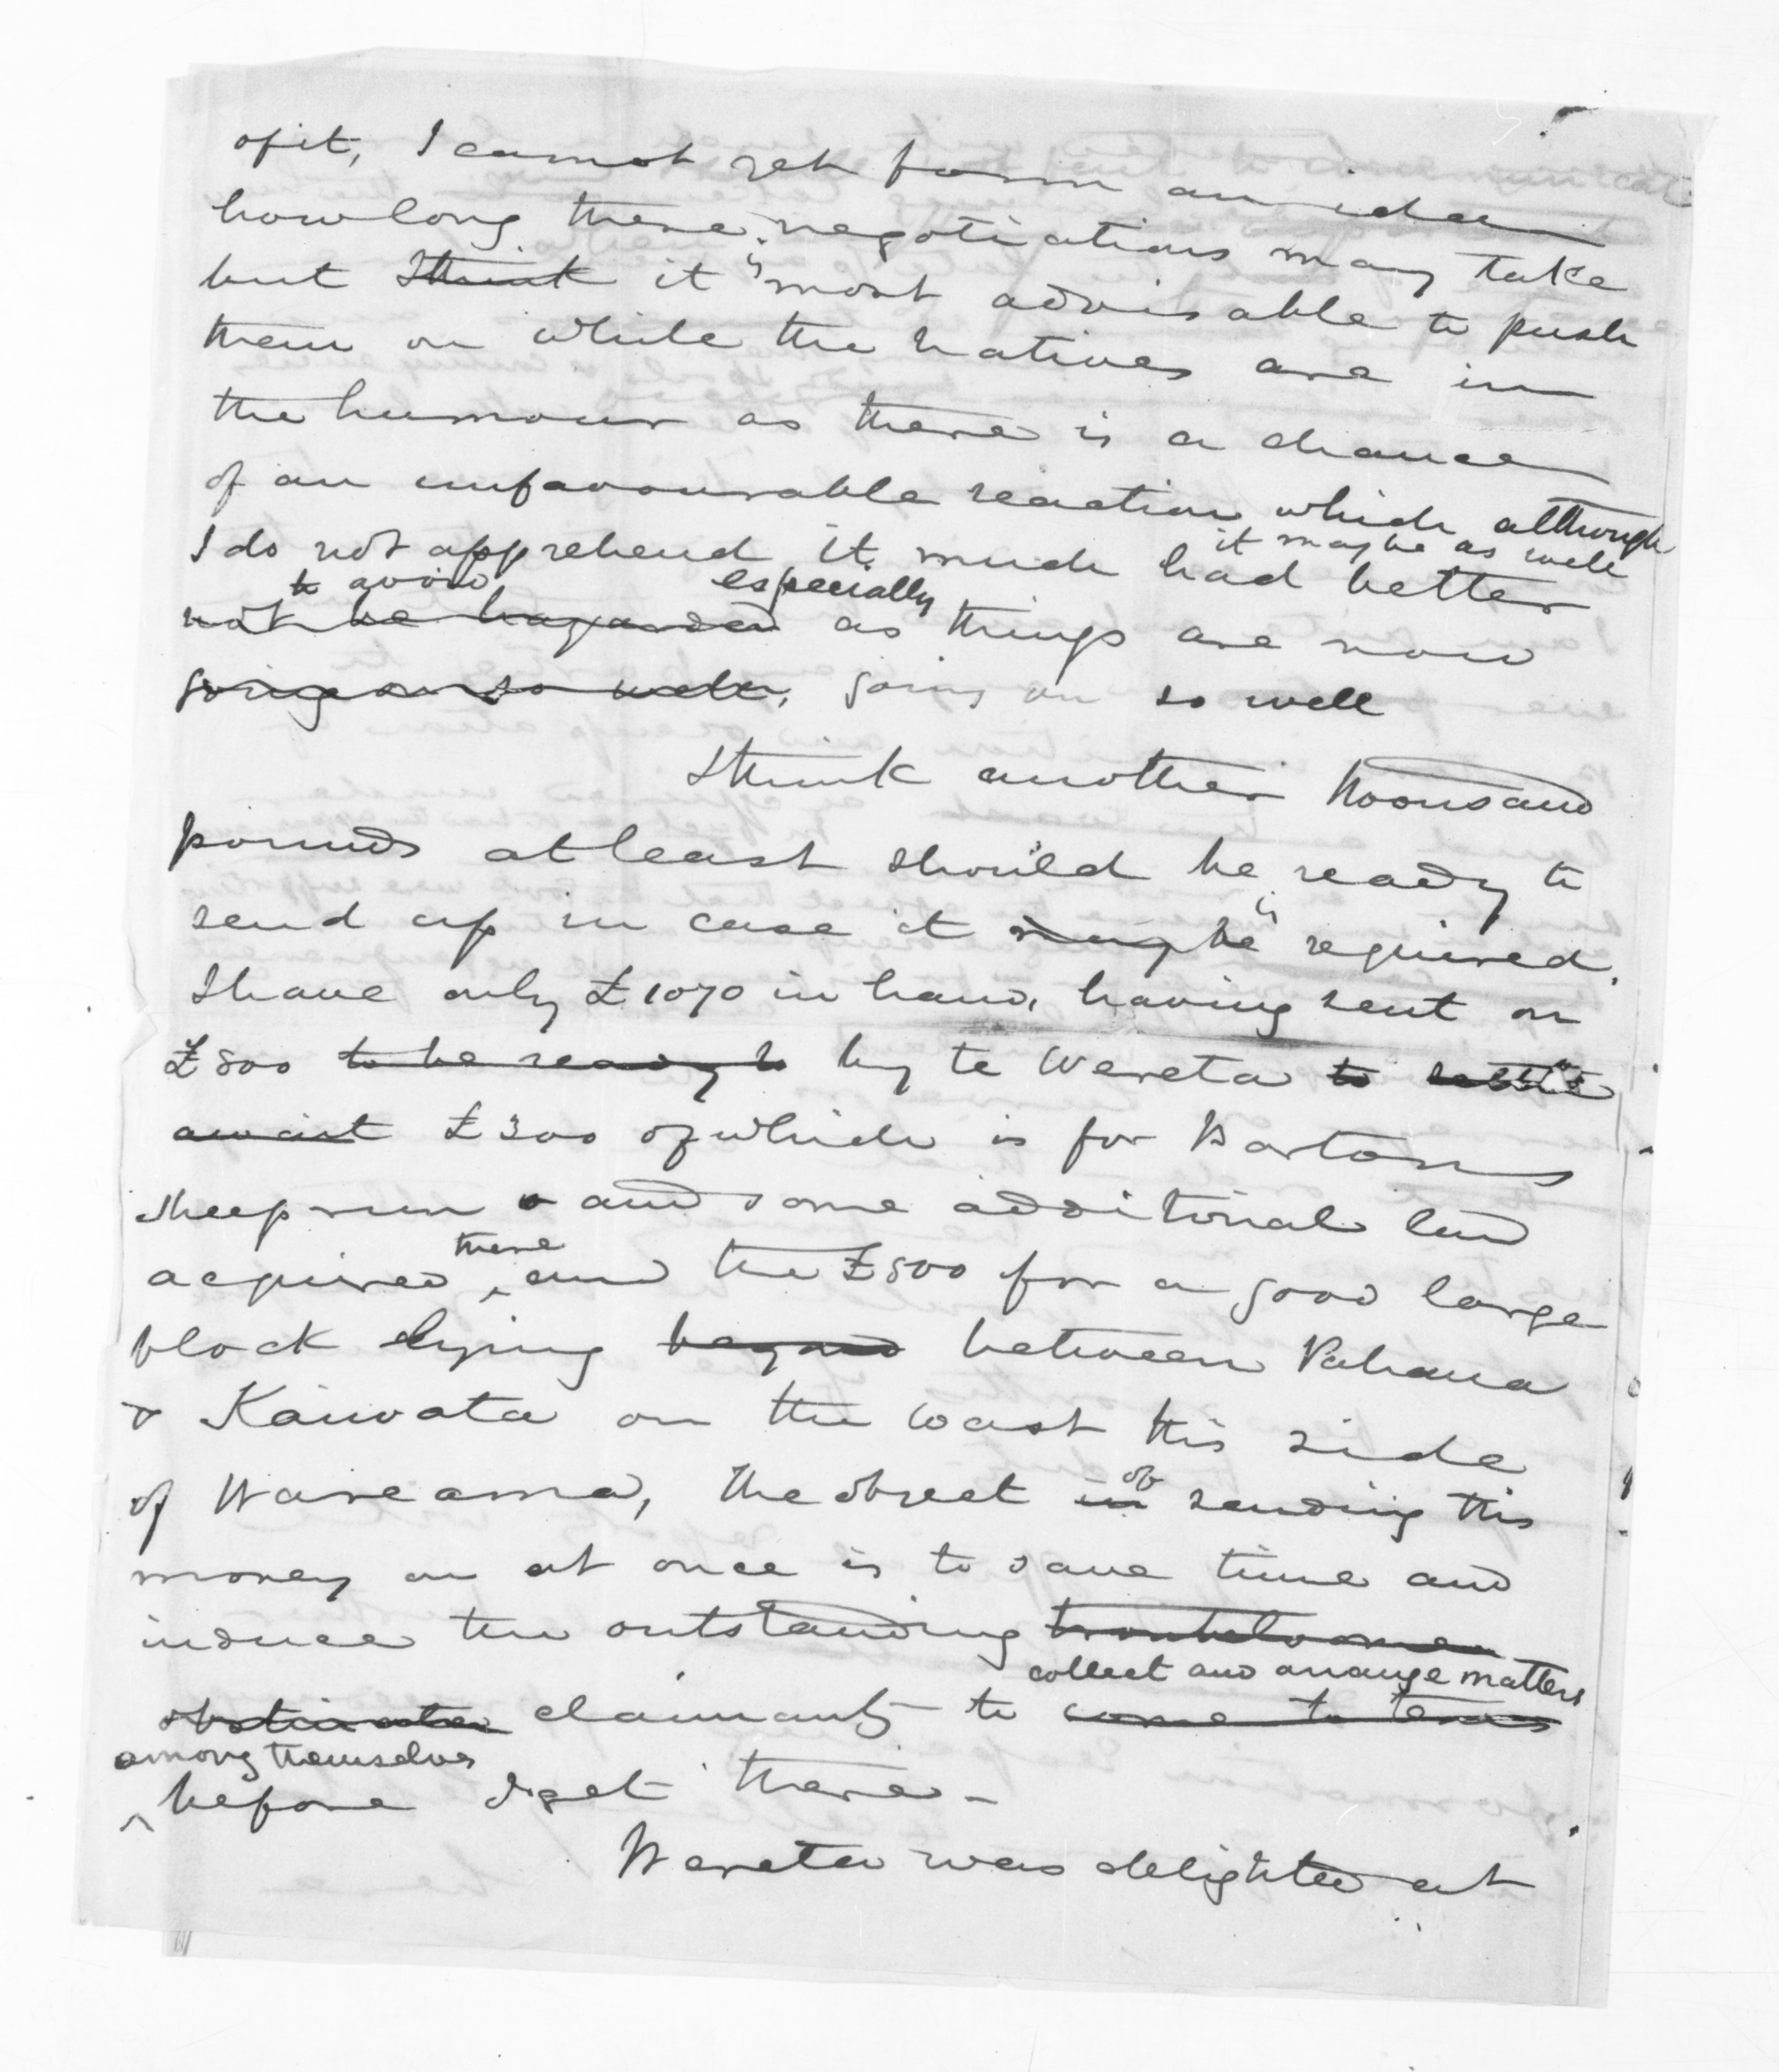 of it, I cannot yet form an idea
how long these negotiations may take
but I think it is most advisable to push
them on while the natives are in
the humour as there is a chance
of an unfavourable reaction which although
I do not apprehend it much had better
it may be as well
to avoid especially
not be hazarded as things are now
going on so well, going on so well
I think another thousand
pounds at least should be ready to
send up in case it may be is required.
I have only £1070 in hand, having sent on
£800 to be ready to by te Wereta to settle
await £300 of which is for Bartons
sheep run and some additional land
acquired there, and the £500 for a good large
block lying beyond between Pahaua
& Kaiwata on the coast this side
of Wareama, the object in of sending this
money on at once is to save time and
induce the outstanding troublesome
collect and arrange matters
obstinate claimants to come to terms
among themselves
before I get there -
Wereta was delighted at